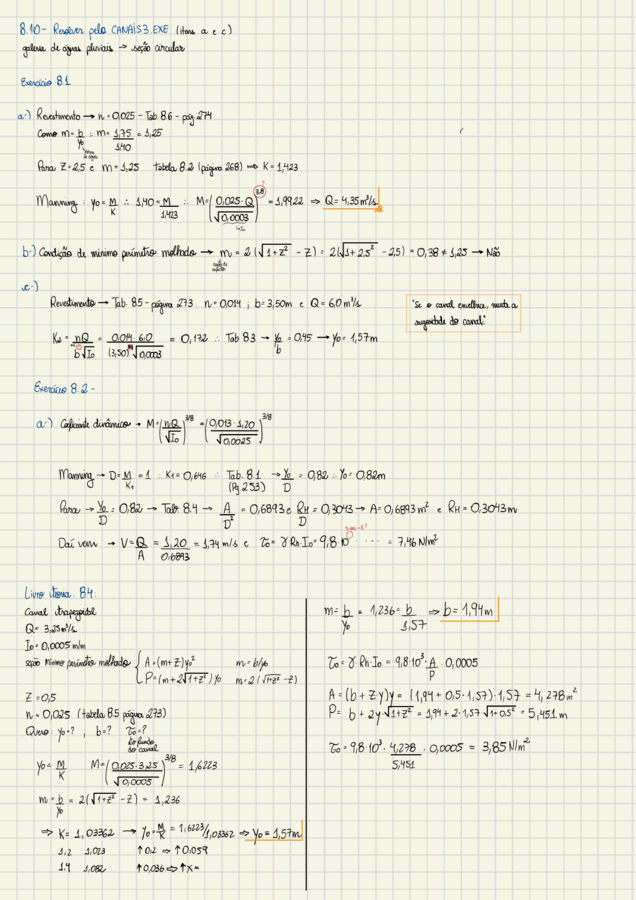 8.10- Resolver pelo CANAIS3.EXE (itens a e c)
galeria de águas pluviais → seção circular
Exercício 8.1
a-) Revestimento → n = 0,025 - Tab 8.6 - pág 274
Como m = b/y₀ ∴ m = 1,75/1,40 = 1,25
Para Z = 2,5 e m = 1,25 tabela 8.2 (página 268) ⇒ K = 1,423
Manning : y₀ = M/K ∴ 1,40 = M/1,423 ∴ M = (0,025·Q/√0,0003)^3/8 = 1,9922 ⇒ Q = 4,35 m³/s
b-) Condição de mínimo perímetro molhado → m = 2(√1+Z² - Z) = 2(√1+2,5² - 2,5) = 0,38 ≠ 1,25 → Não
c-)
Revestimento → Tab. 8.5 - página 273 n = 0,014 ; b = 3,50m e Q = 6,0 m³/s
"Se o canal envelhece, muda a
rugosidade do canal."
K₂ = nQ/b√I₀ = 0,014·6,0/(3,50)√0,0003 = 0,172 ∴ Tab 8.3 → y₀/b = 0,45 → y₀ = 1,57m
Exercício 8.2 -
a-) Coeficiente dinâmico → M = (nQ/√I₀)^3/8 = (0,013·1,20/√0,0025)^3/8
Manning → D = M/K₁ = 1 ∴ K₁ = 0,646 ∴ Tab. 8.1 → y₀/D = 0,82 ∴ y₀ = 0,82m
(Pg 253)
Para → y₀/D = 0,82 → Tab 8.4 → A/D² = 0,6893 e RH/D = 0,3043 → A = 0,6893 m² e RH = 0,3043 m
Daí vem → V = Q/A = 1,20/0,6893 = 1,74 m/s e τ₀ = γ Rh·I₀ = 9,8·10 ····· = 7,46 N/m²
Canal trapezoidal
Q = 3,25 m³/s
I₀ = 0,0005 m/m
seção mínimo perímetro molhado { A = (m+Z)y₀² m = b/y₀
P = (m+2√1+Z²)y₀ m = 2(√1+Z² - Z)
Z = 0,5
n = 0,025 (tabela 8.5 página 273)
Quero: y₀ = ? ; b = ? τ₀ = ?
do fundo
do canal
y₀ = M/K M = (0,025·3,25/√0,0005)^3/8 = 1,6223
m = b/y₀ = 2(√1+Z² - Z) = 1,236
⇒ K = 1,03362 → y₀ = M/K = 1,6223/1,03362 ⇒ y₀ = 1,57m
1,2 1,023 ↑0,2 ⇒ ↑0,059
1,4 1,082 ↑0,036 ⇔ ↑X =
m = b/y₀ = 1,236 = b/1,57 ⇒ b = 1,94m
τ₀ = γ·Rh·I₀ = 9,8·10³·A/P·0,0005
A = (b+Zy)y = (1,94 + 0,5·1,57)·1,57 = 4,278 m²
P = b + 2y√1+Z² = 1,94 + 2·1,57√1+0,5² = 5,451 m
τ₀ = 9,8·10³·4,278/5,451·0,0005 = 3,85 N/m²